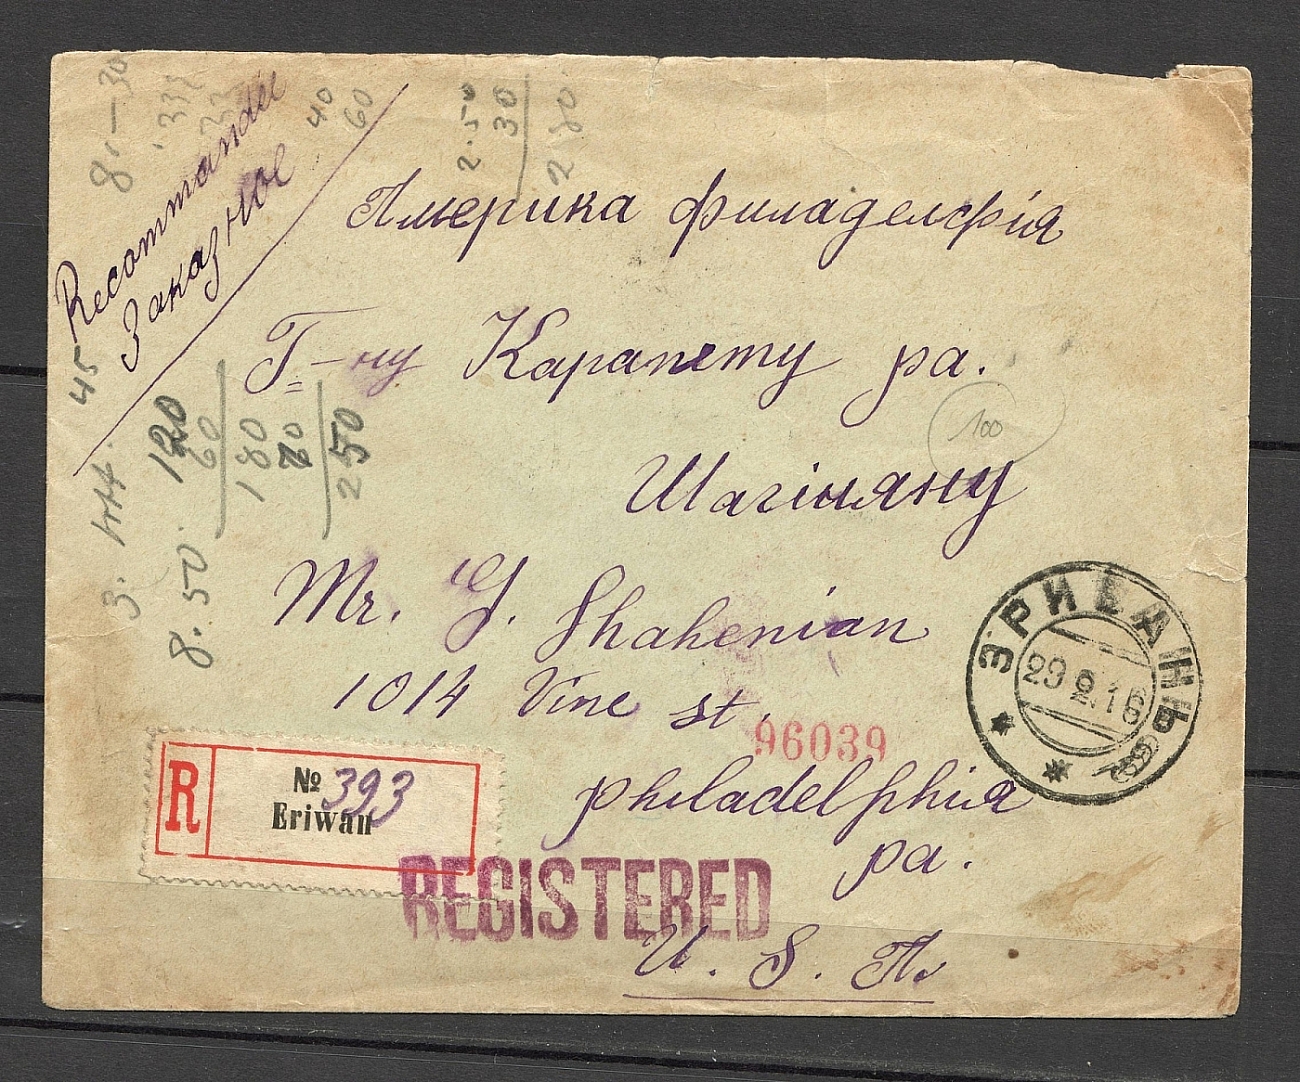 Recommandée
Заказное
8.-30
40
60
2.50
30
2 80
Америка филаделфія
Г-ну Карапету ра.
100
Шагіняну
45
120
60
180
70
250
3.
8.50
Mr. G. Shahenian
1014 Vine st.
ЭРИВАНЬ
29 2.16
96039
R
№ 393
Eriwan
philadelphia
pa.
REGISTERED
U. S. A.